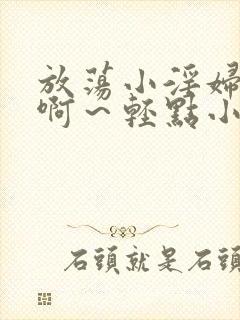 放蕩小淫婦
啊～輕點小
石頭就是石頭